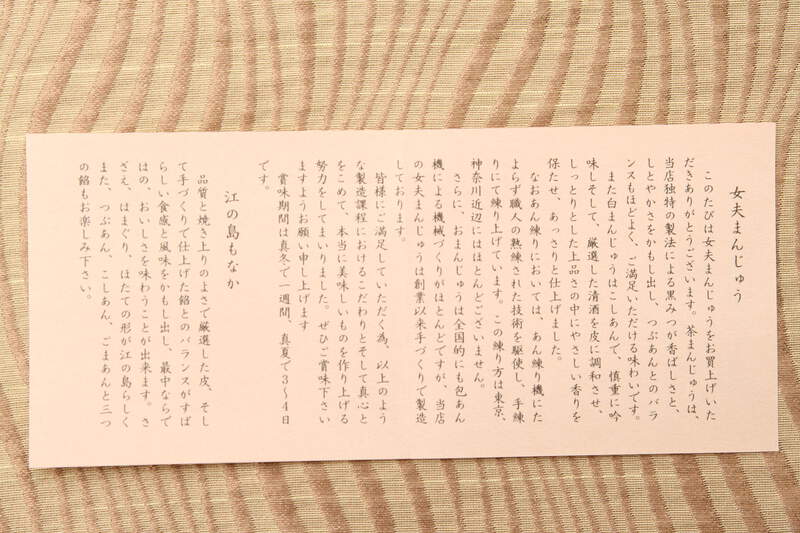 女夫まんじゅう
このたびは女夫まんじゅうをお買上げいた
だきありがとうございます。茶まんじゅうは、
当店独特の製法による黒みつが香ばしさと、
しとやかさをかもし出し、つぶあんとのバラ
ンスもほどよく、ご満足いただける味わいです。
また白まんじゅうはこしあんで、慎重に吟
味しそして、厳選した清酒を皮に調和させ、
しっとりとした上品さの中にやさしい香りを
保たせ、あっさりと仕上げました。
なおあん練りにおいては、あん練り機にた
よらず職人の熟練された技術を駆使し、手練
りにて練り上げています。この練り方は東京、
神奈川近辺にはほとんどございません。
さらに、おまんじゅうは全国的にも包あん
機による機械づくりがほとんどですが、当店
の女夫まんじゅうは創業以来手づくりで製造
しております。
皆様にご満足していただく為、以上のよう
な製造課程におけるこだわりとそして真心と
をこめて、本当に美味しいものを作り上げる
努力をしてまいりました。ぜひご賞味下さい
ますようお願い申し上げます
賞味期間は真冬で一週間、真夏で3〜4日
です。
江の島もなか
品質と焼き上りのよさで厳選した皮、そし
て手づくりで仕上げた餡とのバランスがすば
らしい食感と風味をかもし出し、最中ならで
はの、おいしさを味わうことが出来ます。さ
ざえ、はまぐり、ほたての形が江の島らしく
また、つぶあん、こしあん、ごまあんと三つ
の餡もお楽しみ下さい。